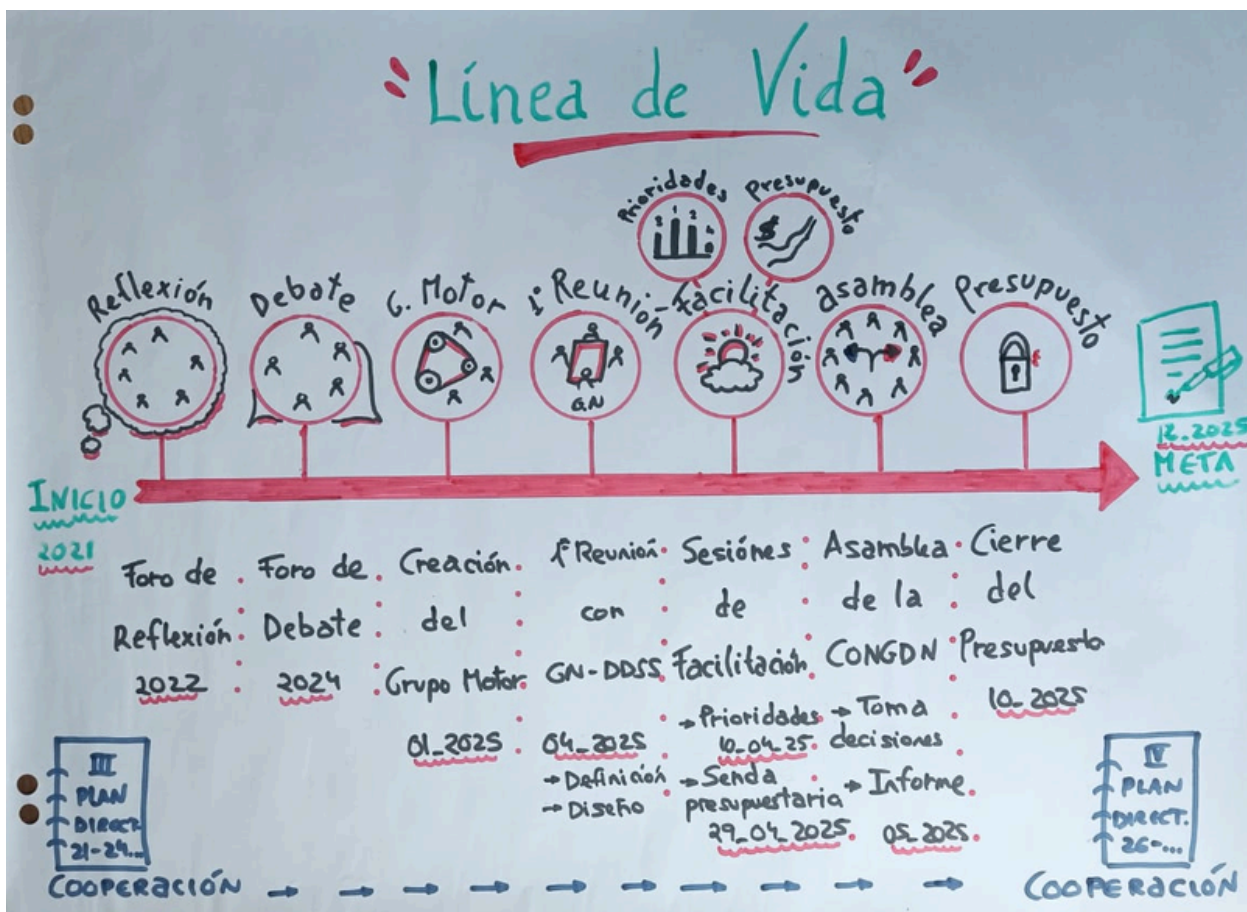 "Línea de Vida"
Prioridades
Presupuesto
3 1 2
$
Reflexión
Debate
G. Motor
1ª Reunión
Facilitación
asamblea
Presupuesto
G.N
€
INICIO
2021
12.2025
META
Foro de
Reflexión
2022
Foro de
Debate
2024
Creación
del
Grupo Motor
01_2025
1ª Reunión
con
GN-DDSS
04_2025
→ Definición
→ Diseño
Sesiónes
de
Facilitación
→ Prioridades
10_04_25
→ Senda
presupuestaria
29_04_2025
Asamblea
de la
CONGDN
→ Toma
decisiones
→ Informe
05_2025
Cierre
del
Presupuesto
10_2025
III
PLAN
DIRECT.
21-24...
COOPERACIÓN
IV
PLAN
DIRECT.
26-...
COOPERACIÓN